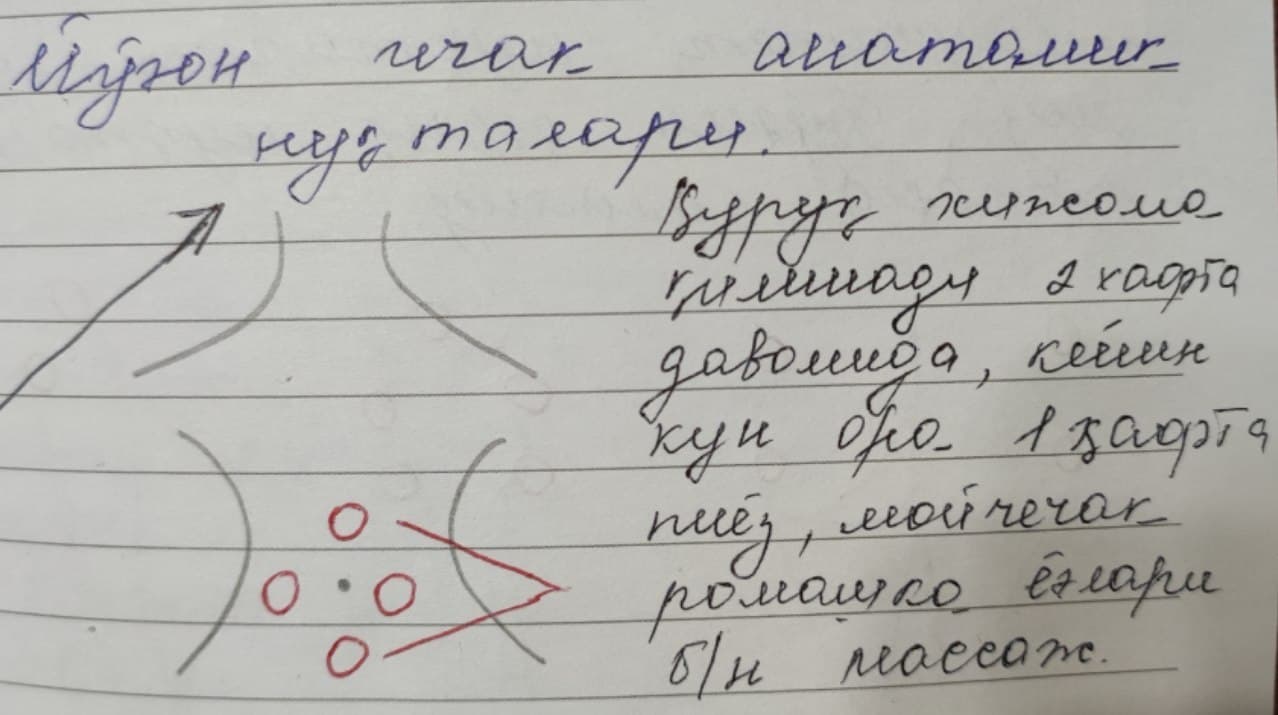 Йўғон ичак анатомик
нуқталари.
Қуруқ хижома
қилинади 2 хафта
давомида, кейин
кун ора 1 ҳафта
пиёз, мойчечак
ромашка ёғлари
б/н массаж.